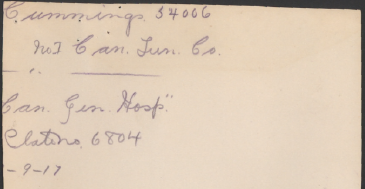 Cummings. 54006
No 1 Can. Tun. Co.
— ". ———
Can. Gen. Hosp."
6804
- 9-17